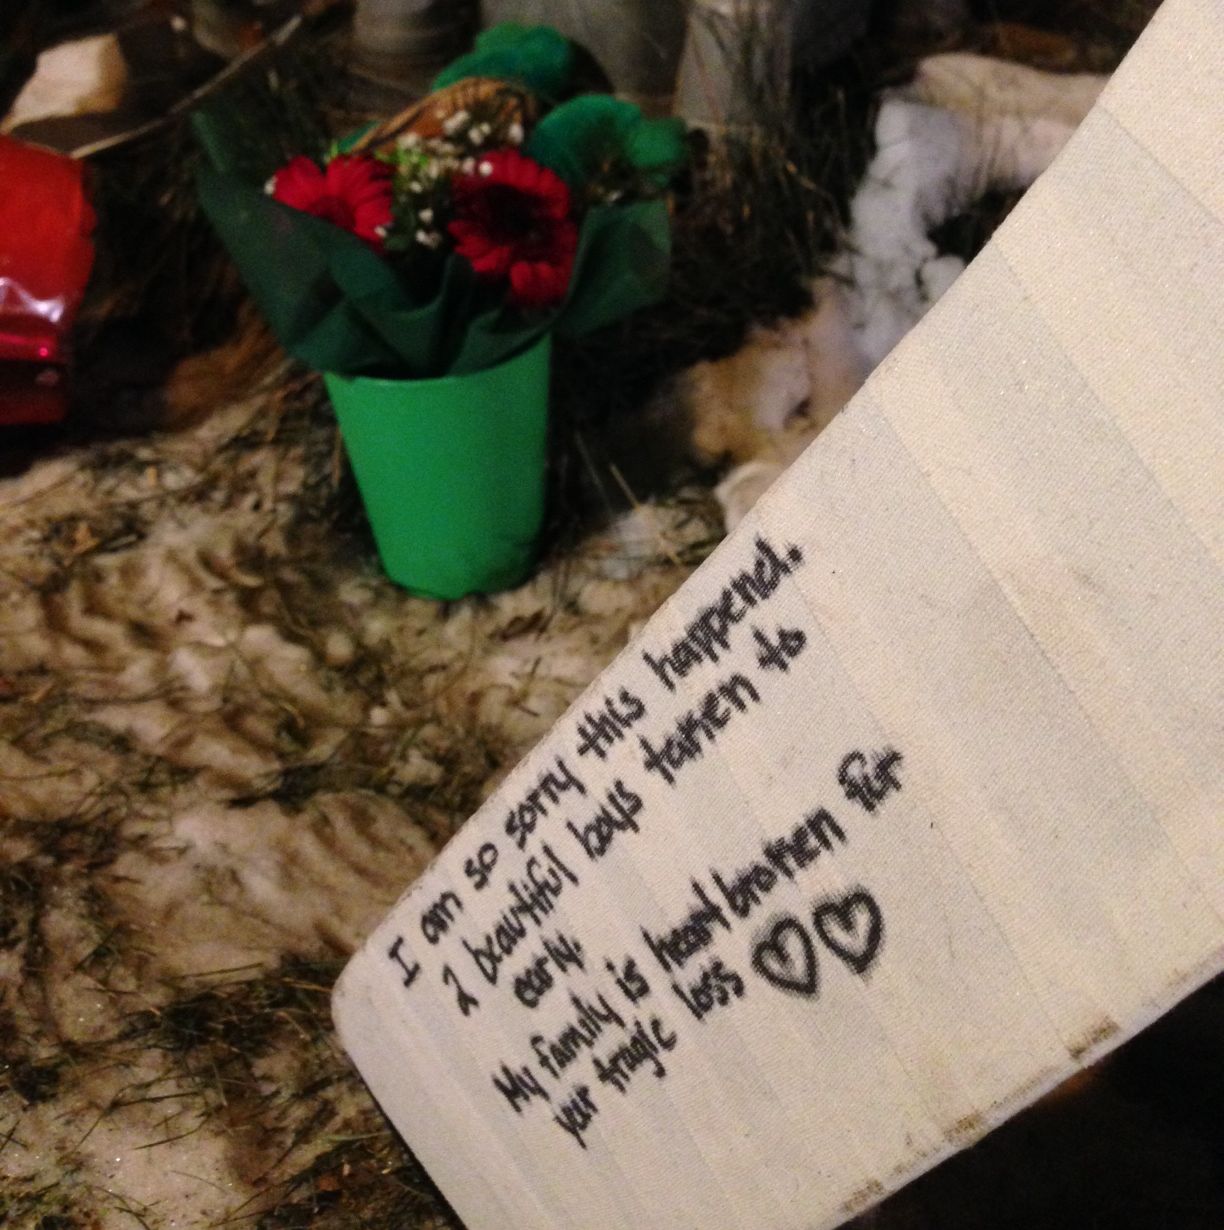 I am so sorry this happened.
2 beautiful boys taken to
early.
My family is heart broken for
your tragic loss